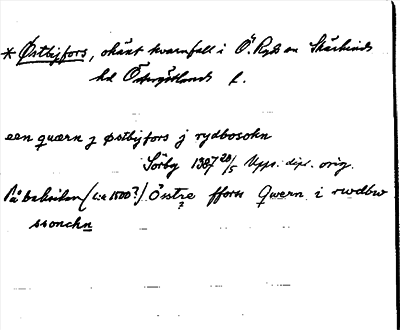 * Østbyfors, okänt kvarnfall i Ö. Ryds sn Skärkinds
hd Östergötlands l.
een quærn j østbyfors j rydbosokn
Sörby 1387 20/5 Upps. dipl. orig.
På baksidan (c:a 1500?) Östre ffors Qwern i rwdbw
ssonchn